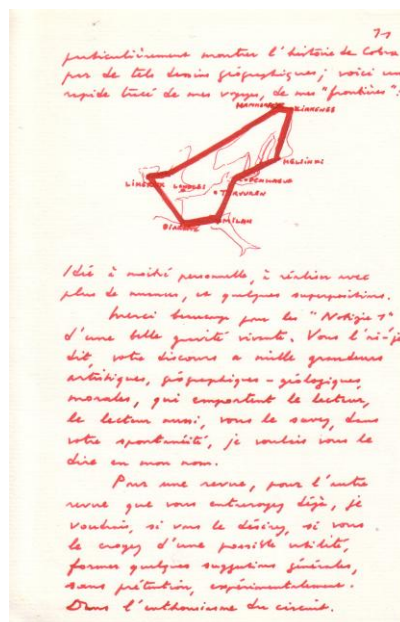 7)
particulièrement montrer l'histoire de Cobra
par de tels dessins géographiques; voici un
rapide tracé de mes voyages, de mes "frontières":
HAMMERFEST KIRKENES
HELSINKI
COPENHAGUE
LIMERICK LONDRES TERVUREN
BIARRITZ MILAN
Idée à moitié personnelle, à réaliser avec
plus de nuances, et quelques superpositions.
Merci beaucoup pour les "Notizie 1"
d'une belle gravité vivante. Vous l'ai-je
dit, votre discours a mille grandeurs
artistiques, géographiques - géologiques,
morales, qui emportent le lecteur,
le lecteur aussi, vous le savez, dans
votre spontanéité, je voulais vous le
dire en mon nom.
Pour une revue, pour l'autre
revue que vous envisagez déjà, je
voudrais, si vous le désirez, si vous
le croyez d'une possible utilité,
former quelques suggestions générales,
sans prétention, expérimentalement.
Dans l'enthousiasme du circuit.